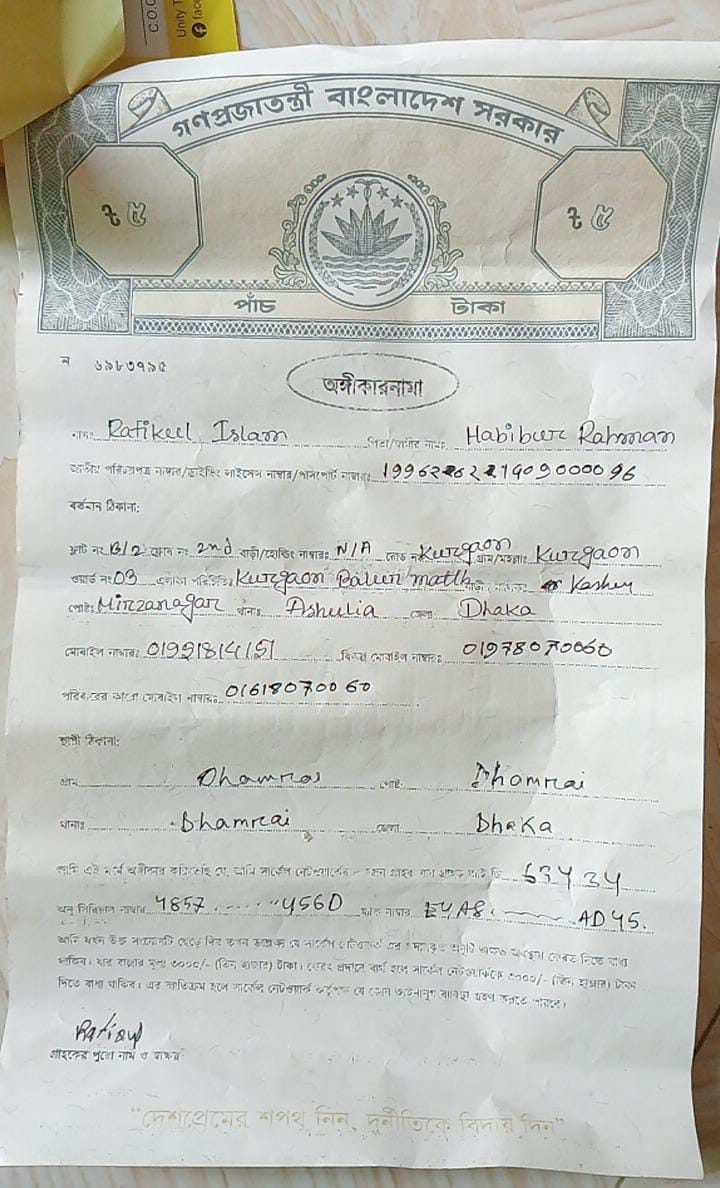 C.O.C
Unity T
face
গণপ্রজাতন্ত্রী বাংলাদেশ সরকার
৳ ৫ ৳ ৫
পাঁচ টাকা
ন ৬৯৮৩৭৯৫
অঙ্গীকারনামা
নামঃ Rafikul Islam পিতা/স্বামীর নামঃ Habibur Rahman
জাতীয় পরিচয়পত্র নাম্বার/ড্রাইভিং লাইসেন্স নাম্বার/পাসপোর্ট নাম্বারঃ
বর্তমান ঠিকানা:
ফ্লাট নং B/2 ফ্লোর নং 2nd বাড়ী/হোল্ডিং নাম্বারঃ N/A রোড নং Kurgaon গ্রাম/মহল্লাঃ Kurgaon
ওয়ার্ড নং 03 এলাকা পরিচিতিঃ Kurgaon
পোষ্টঃ Mirzanagar থানাঃ Ashulia জেলা Dhaka
মোবাইল নাম্বারঃ বিকল্প মোবাইল নাম্বারঃ 01978070060
পরিবারের কারো মোবাইল নাম্বারঃ 01618070060
স্থায়ী ঠিকানা:
গ্রাম Dhamrai পোষ্ট Dhamrai
থানাঃ Dhamrai জেলা Dhaka
আমি এই মর্মে অঙ্গীকার করিতেছি যে, আমি সার্কেল নেটওয়ার্কের একজন গ্রাহক যার গ্রাহক আই ডি 63434
অনু সিরিয়াল নাম্বার 4857......4560 ম্যাক নাম্বার AD45.
আমি যখন উক্ত সংযোগটি ছেড়ে দিব তখন
থাকিব। যার বাজার মূল্য ৩০০০/- (তিন হাজার) টাকা। ফেরৎ প্রদানে ব্যর্থ হলে সার্কেল নেটওয়ার্ককে ৩০০০/- (তিন হাজার) টাকা
দিতে বাধ্য থাকিব। এর ব্যতিক্রম হলে সার্কেল নেটওয়ার্ক কর্তৃপক্ষ যে কোন আইনানুগ ব্যবস্থা গ্রহণ করতে পারবে।
গ্রাহকের পুরো নাম ও স্বাক্ষর
"দেশপ্রেমের শপথ নিন, দুর্নীতিকে বিদায় দিন"